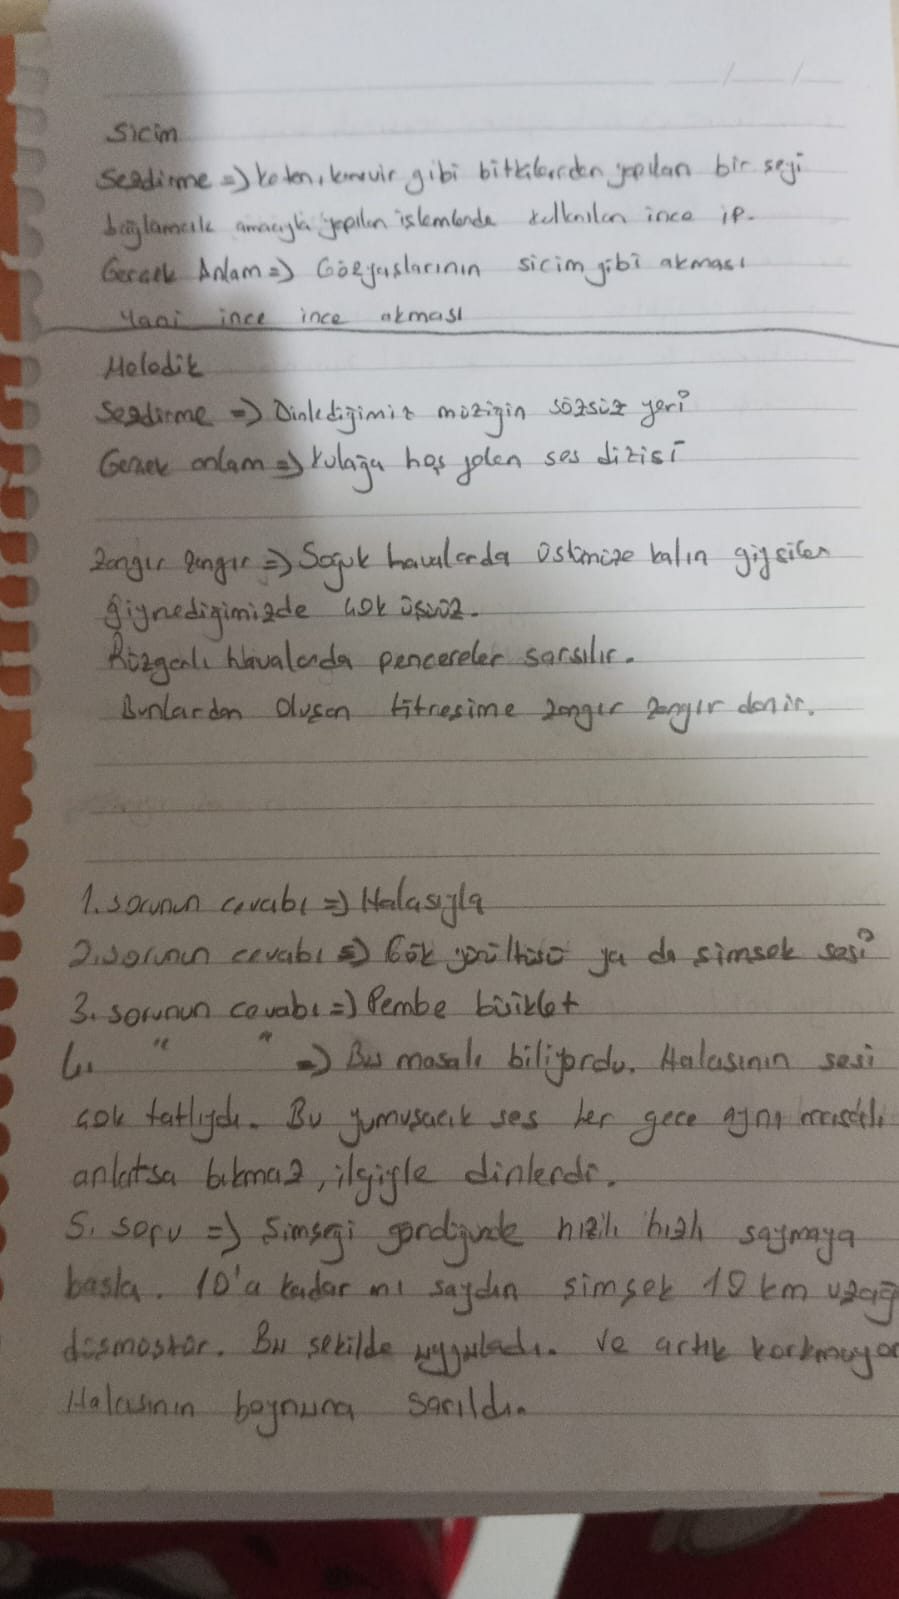 Sicim
Sezdirme => Keten, kenevir gibi bitkilerden yapılan bir şeyi
bağlamak amacıyla yapılan işlemlerde kullanılan ince ip.
Gerçek Anlam => Gözyaşlarının sicim gibi akması
Yani ince ince akması
Melodik
Sezdirme => Dinlediğimiz müziğin sözsüz yeri
Gerçek anlam => Kulağa hoş gelen ses dizisi
Zangır zangır => Soğuk havalarda üstümüze kalın giysiler
giymediğimizde çok üşürüz.
Rüzgarlı havalarda pencereler sarsılır.
Bunlardan oluşan titreşime zangır zangır denir.
1. sorunun cevabı => Halasıyla
2. sorunun cevabı => Gök gürültüsü ya da şimşek sesi
3. sorunun cevabı => Pembe bisiklet
4. " " => Bu masalı biliyordu. Halasının sesi
çok tatlıydı. Bu yumuşacık ses her gece aynı masalı
anlatsa bıkmaz, ilgiyle dinlerdi.
5. soru => Şimşeği gördüğünde hızlı hızlı saymaya
başla. 10'a kadar mı saydın şimşek 10 km uzağ
düşmüştür. Bu şekilde uyguladı. ve artık korkmuyor
Halasının boynuna sarıldı.